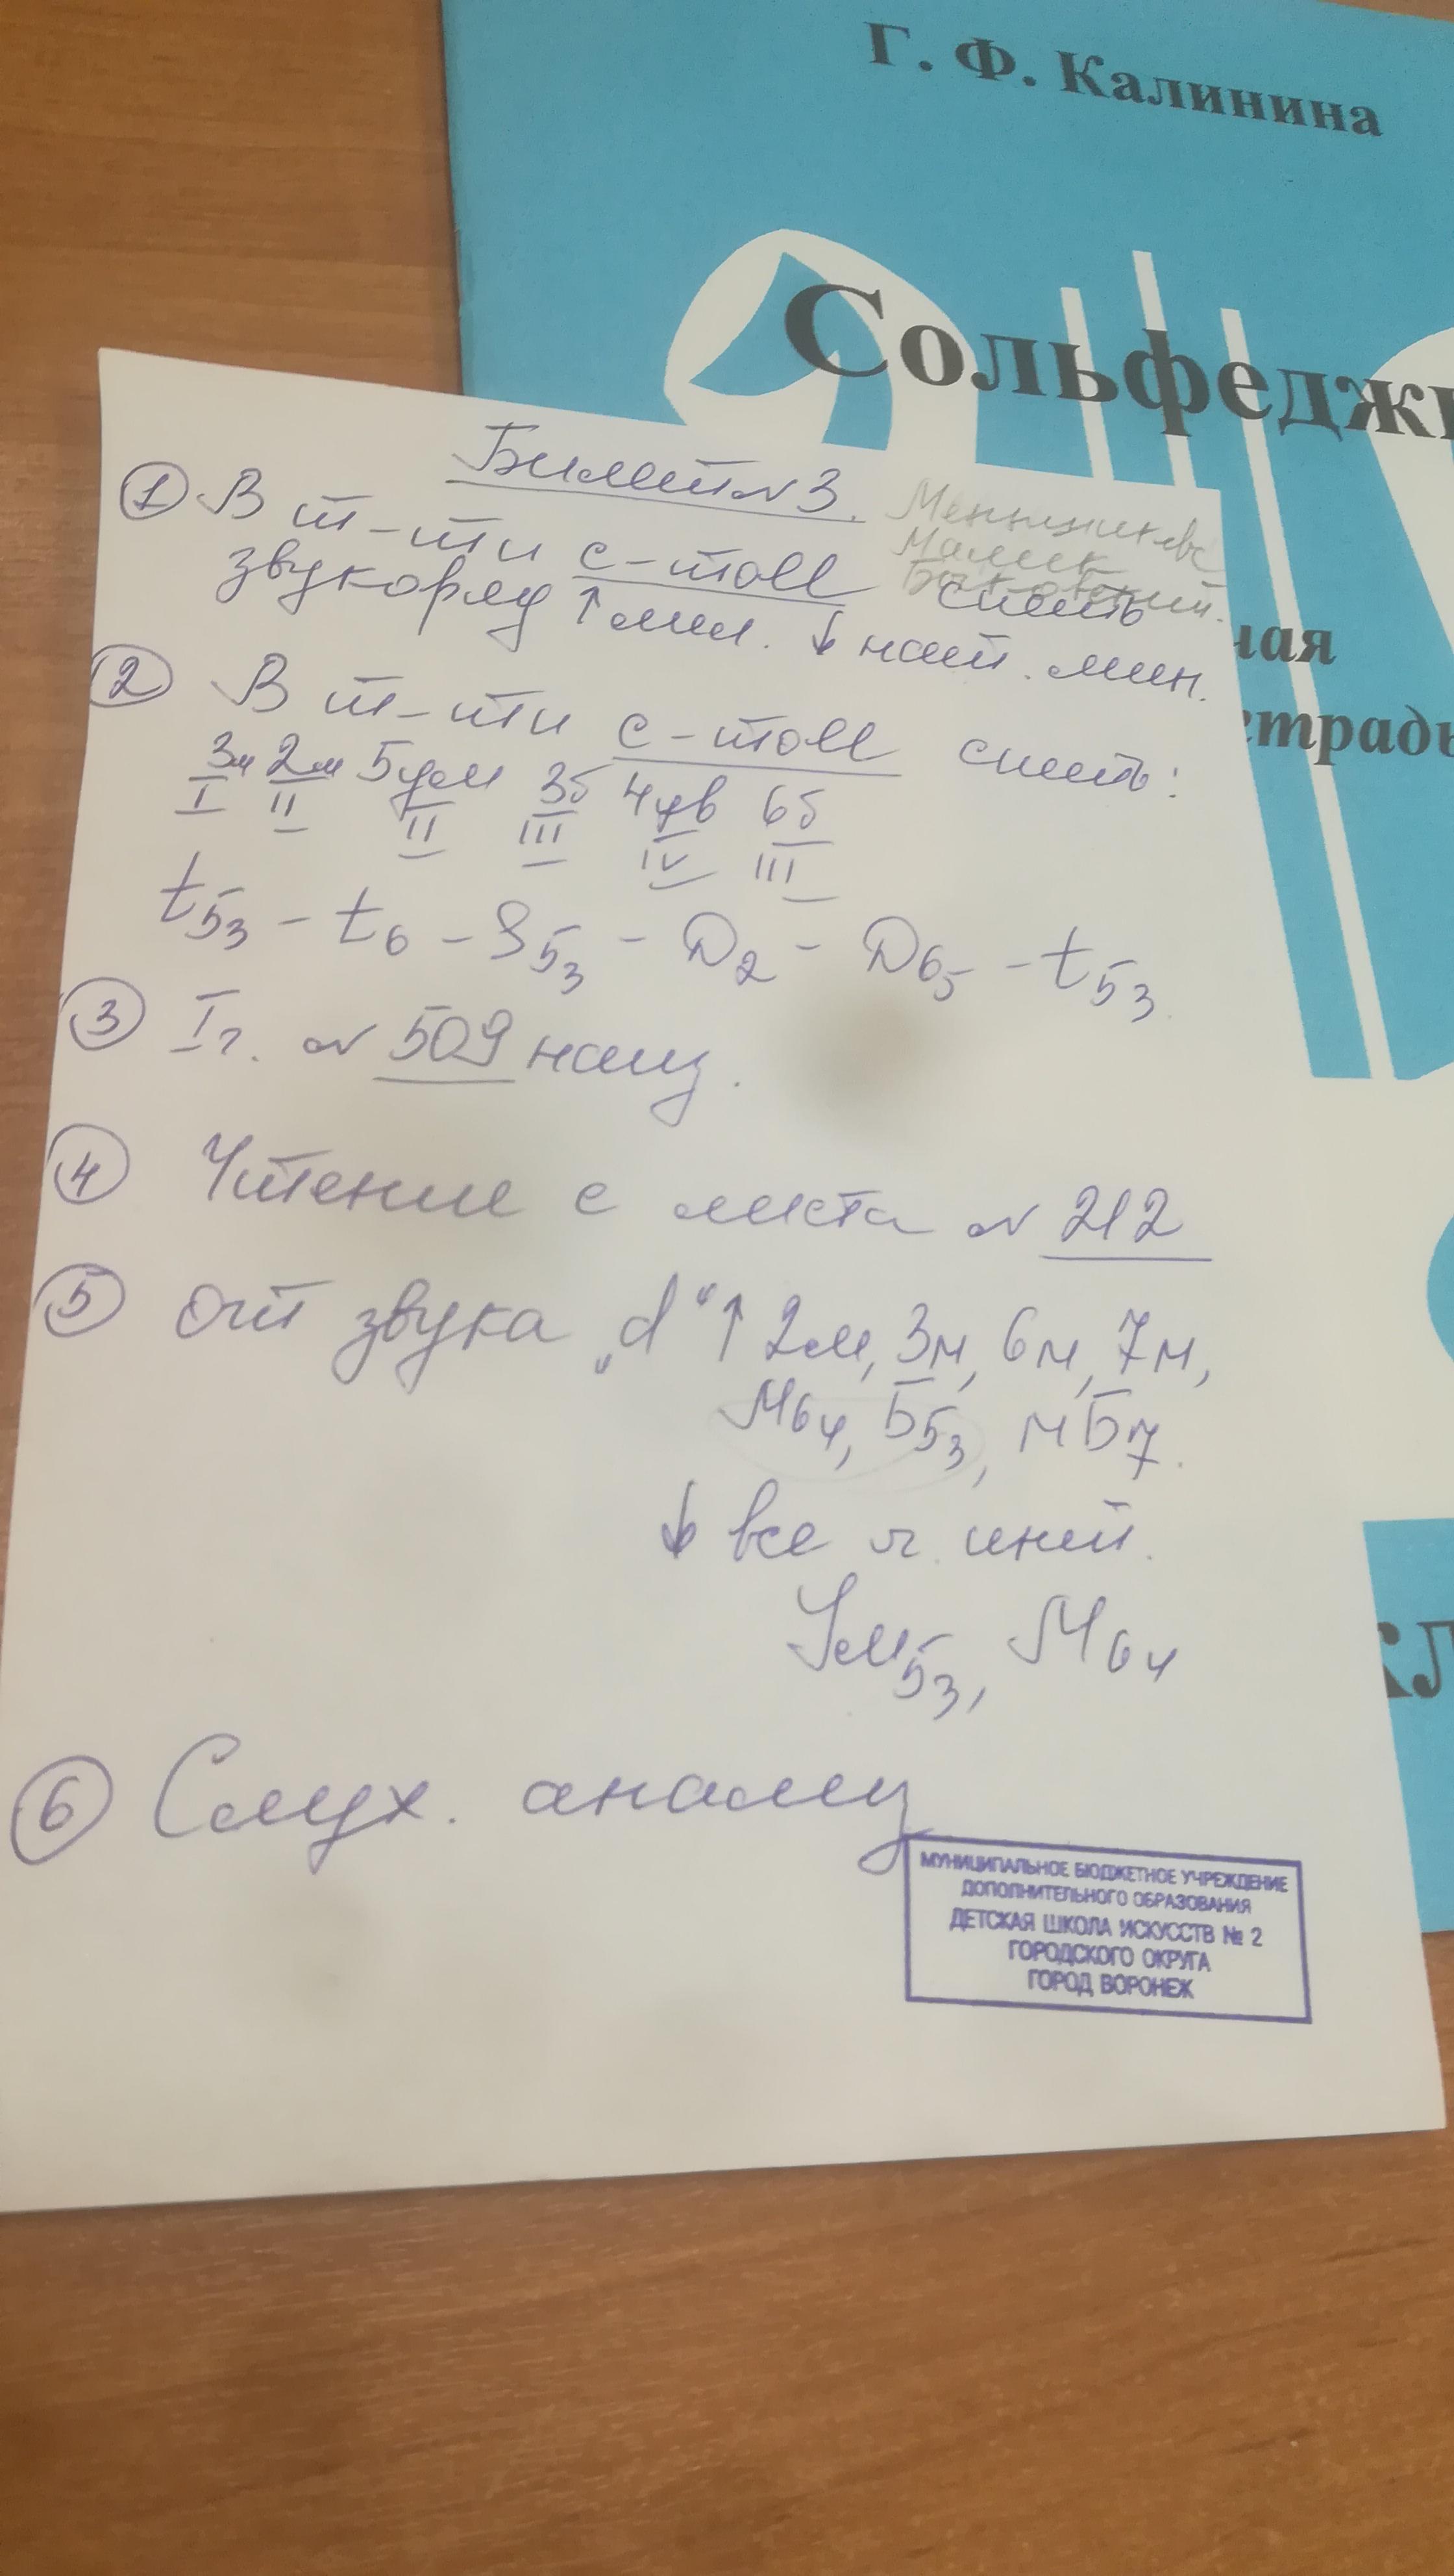 Г. Ф. Калинина
Сольфеджи
ная
тетрадь
кл
Билет № 3.
① В т-ти c-moll спеть
звукоряд ↑ мел. ↓ нат. мин.
② В т-ти c-moll спеть:
3м 2м 5ум 3б 4ув 6б
I II II III IV III
t53 – t6 – S53 – D2 – D65 – t53
③ Iг. № 509 наиз.
④ Чтение с листа № 212
⑤ От звука „d“ ↑ 2м, 3м, 6м, 7м,
М64, Б53, мБ7.
↓ все ч. инт.
Ум53, М64
⑥ Слух. анализ
МУНИЦИПАЛЬНОЕ БЮДЖЕТНОЕ УЧРЕЖДЕНИЕ
ДОПОЛНИТЕЛЬНОГО ОБРАЗОВАНИЯ
ДЕТСКАЯ ШКОЛА ИСКУССТВ № 2
ГОРОДСКОГО ОКРУГА
ГОРОД ВОРОНЕЖ